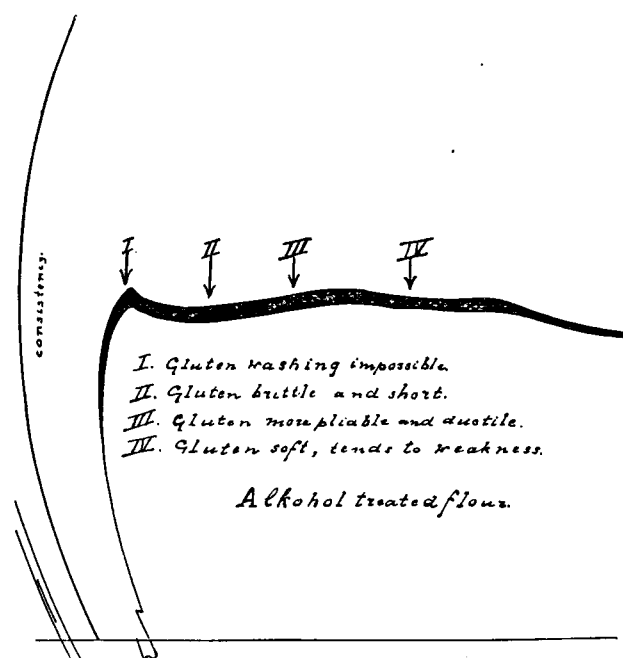 I II III IV
consistency.
I. Gluten washing impossible.
II. Gluten brittle and short.
III. Gluten more pliable and ductile.
IV. Gluten soft, tends to weakness.
Alkohol treated flour.